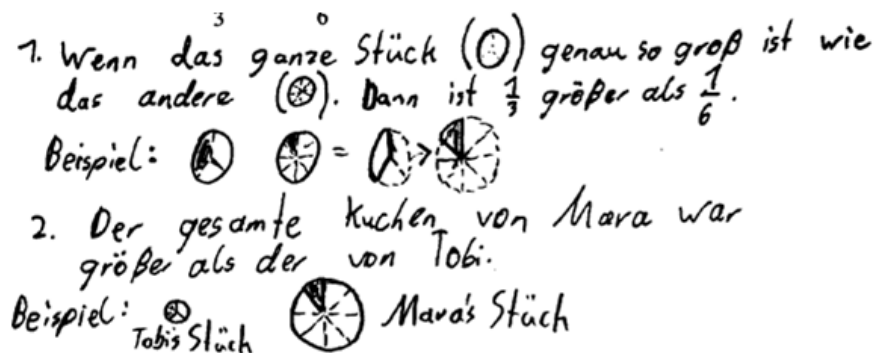 3 6
1. Wenn das ganze Stück ( ) genau so groß ist wie
das andere ( ). Dann ist 1/3 größer als 1/6.
Beispiel: = >
2. Der gesamte Kuchen von Mara war
größer als der von Tobi.
Beispiel: Tobis Stüch Mara's Stüch